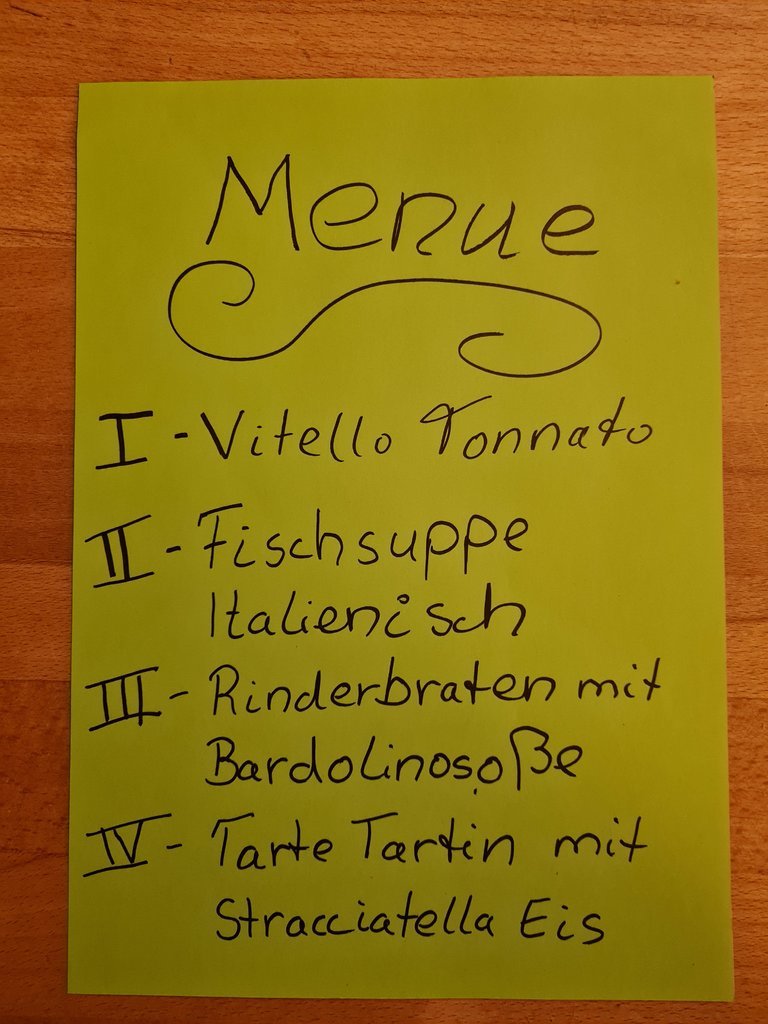 Menue
I - Vitello Tonnato
II - Fischsuppe
Italienisch
III - Rinderbraten mit
Bardolinosoße
IV - Tarte Tartin mit
Stracciatella Eis